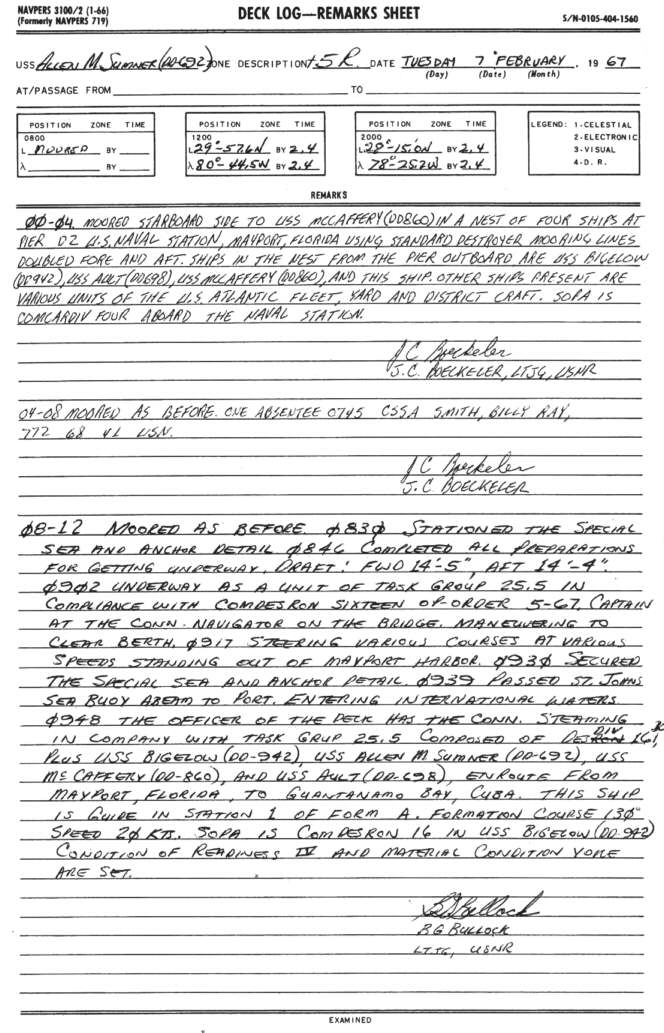 NAVPERS 3100/2 (1-66)
(Formerly NAVPERS 719)
DECK LOG—REMARKS SHEET
S/N-0105-404-1560
USS ALLEN M. SUMNER (DD-692) ZONE DESCRIPTION +5 R DATE TUESDAY 7 FEBRUARY, 1967
(Day) (Date) (Month)
AT/PASSAGE FROM TO
POSITION ZONE TIME
0800
L MOORED BY
λ BY
POSITION ZONE TIME
1200
L 29°-57.6N BY 2,4
λ 80°-44.5W BY 2,4
POSITION ZONE TIME
2000
L 28°-15.0N BY 2,4
λ 78°-25.2W BY 2,4
LEGEND: 1-CELESTIAL
2-ELECTRONIC
3-VISUAL
4-D. R.
REMARKS
00-04 MOORED STARBOARD SIDE TO USS MCCAFFERY (DD860) IN A NEST OF FOUR SHIPS AT
PIER D2 U.S. NAVAL STATION, MAYPORT, FLORIDA USING STANDARD DESTROYER MOORING LINES
DOUBLED FORE AND AFT. SHIPS IN THE NEST FROM THE PIER OUTBOARD ARE USS BIGELOW
(DD942), USS AULT (DD698), USS MCCAFFERY (DD860), AND THIS SHIP. OTHER SHIPS PRESENT ARE
VARIOUS UNITS OF THE U.S. ATLANTIC FLEET, YARD AND DISTRICT CRAFT. SOPA IS
COMCARDIV FOUR ABOARD THE NAVAL STATION.
J C Boeckeler
J.C. BOECKELER, LTJG, USNR
04-08 MOORED AS BEFORE. ONE ABSENTEE 0745 CSSA SMITH, BILLY RAY,
772 68 41 USN.
J C Boeckeler
J. C BOECKELER
08-12 MOORED AS BEFORE. 0830 STATIONED THE SPECIAL
SEA AND ANCHOR DETAIL 0846 COMPLETED ALL PREPARATIONS
FOR GETTING UNDERWAY, DRAFT: FWD 14'-5", AFT 14'-4".
0902 UNDERWAY AS A UNIT OF TASK GROUP 25.5 IN
COMPLIANCE WITH COMDESRON SIXTEEN OP-ORDER 5-67. CAPTAIN
AT THE CONN. NAVIGATOR ON THE BRIDGE. MANEUVERING TO
CLEAR BERTH. 0917 STEERING VARIOUS COURSES AT VARIOUS
SPEEDS STANDING OUT OF MAYPORT HARBOR. 0930 SECURED
THE SPECIAL SEA AND ANCHOR DETAIL. 0939 PASSED ST. JOHNS
SEA BUOY ABEAM TO PORT. ENTERING INTERNATIONAL WATERS
0948 THE OFFICER OF THE DECK HAS THE CONN. STEAMING
IN COMPANY WITH TASK GRUP 25.5 COMPOSED OF DESDIV 161,
PLUS USS BIGELOW (DD-942), USS ALLEN M SUMNER (DD-692), USS
MC CAFFERY (DD-860), AND USS AULT (DD-698), ENROUTE FROM
MAYPORT, FLORIDA, TO GUANTANAMO BAY, CUBA. THIS SHIP
IS GUIDE IN STATION 1 OF FORM A. FORMATION COURSE 130°
SPEED 20 KTS. SOPA IS COMDESRON 16 IN USS BIGELOW (DD-942)
CONDITION OF READINESS IV AND MATERIAL CONDITION YOKE
ARE SET.
B G Bullock
B G BULLOCK
LTJG, USNR
EXAMINED